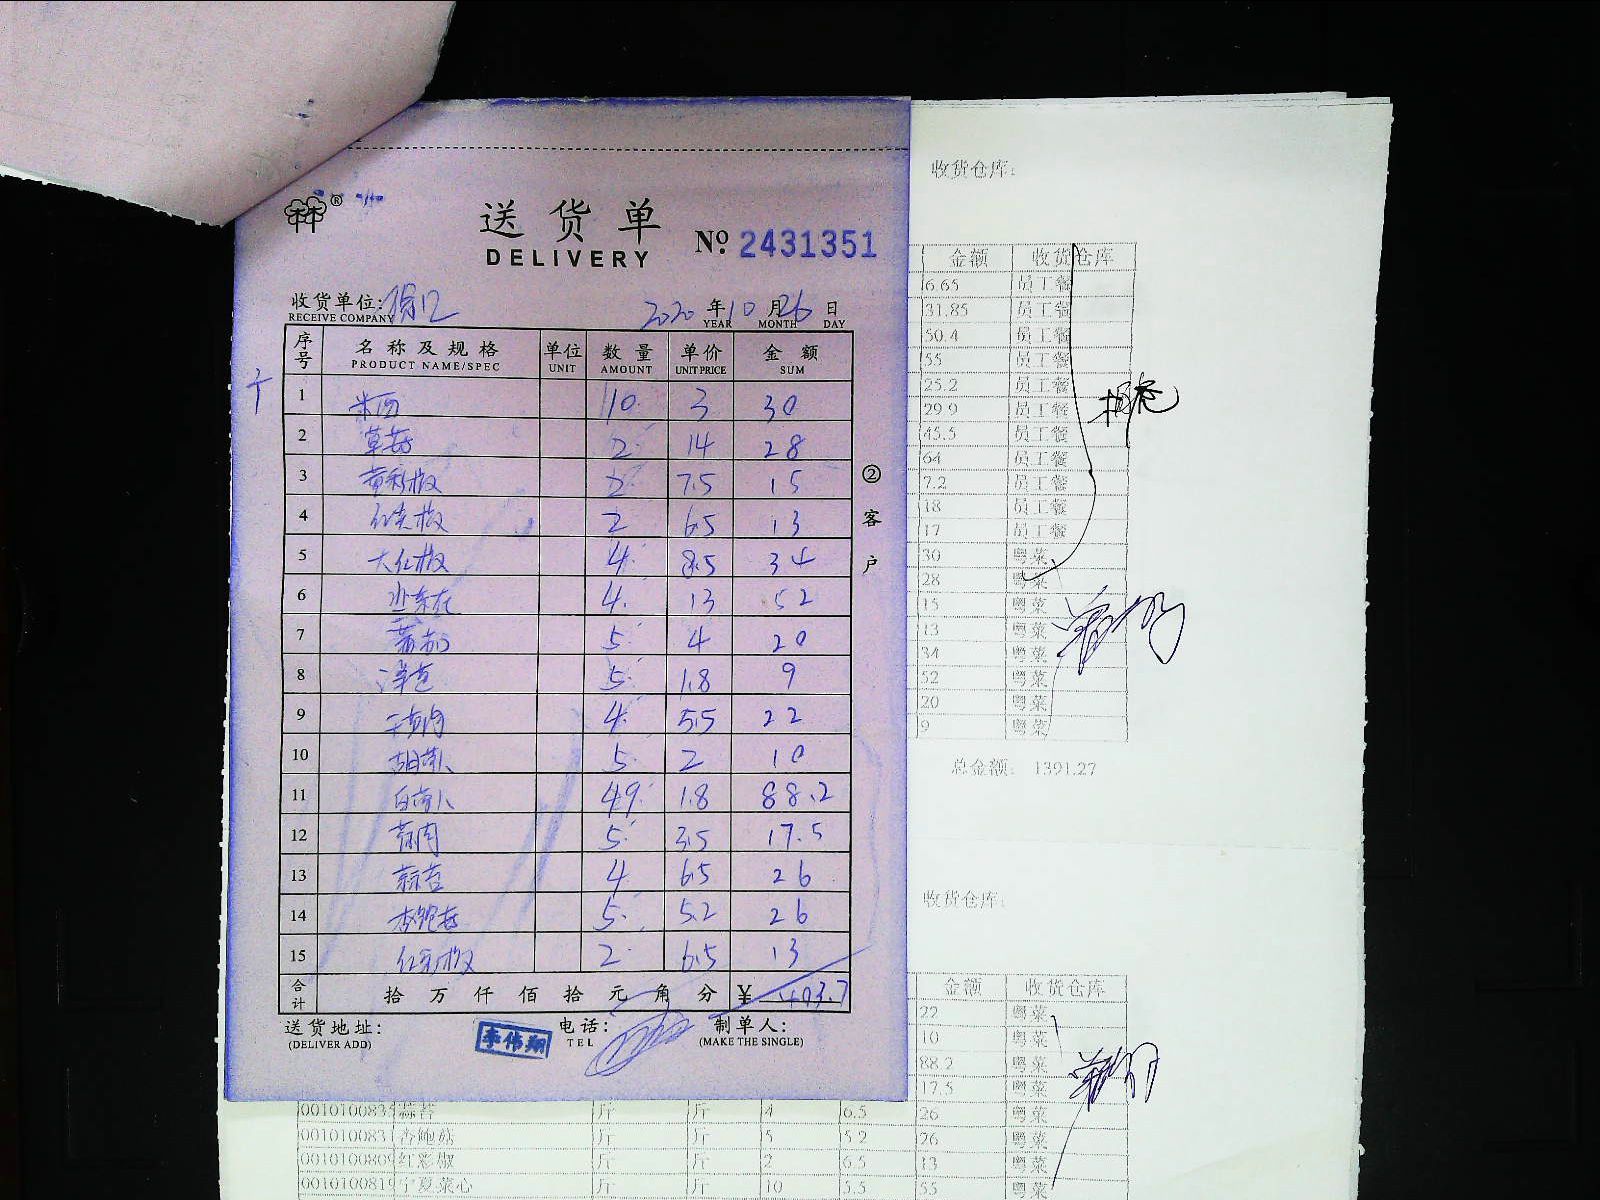 送货单
DELIVERY
№ 2431351
收货单位:
RECEIVE COMPANY
2020 年 10 月 26 日
YEAR MONTH DAY
序号 名称及规格 单位 数量 单价 金额
PRODUCT NAME/SPEC UNIT AMOUNT UNIT PRICE SUM
1 10 3 30
2 草菇 2 14 28
3 黄彩椒 2 7.5 15
4 红尖椒 2 6.5 13
5 大红椒 4 8.5 34
6 4 13 52
7 蕃茄 5 4 20
8 洋葱 5 1.8 9
9 4 5.5 22
10 5 2 10
11 49 1.8 88.2
12 5 3.5 17.5
13 蒜苔 4 6.5 26
14 杏鲍菇 5 5.2 26
15 红彩椒 2 6.5 13
合计 拾 万 仟 佰 拾 元 角 分 ¥ 403.7
送货地址: 电话: 制单人:
(DELIVER ADD) TEL (MAKE THE SINGLE)
李伟翔
② 客户
收货仓库:
金额 收货仓库
6.65 员工餐
31.85 员工餐
50.4 员工餐
55 员工餐
25.2 员工餐
29.9 员工餐
45.5 员工餐
64 员工餐
7.2 员工餐
18 员工餐
17 员工餐
30 粤菜
28 粤菜
15 粤菜
13 粤菜
34 粤菜
52 粤菜
20 粤菜
9 粤菜
总金额: 1391.27
收货仓库:
金额 收货仓库
22 粤菜
10 粤菜
88.2 粤菜
17.5 粤菜
蒜苔 斤 斤 4 6.5 26 粤菜
杏鲍菇 斤 斤 5 5.2 26 粤菜
红彩椒 斤 斤 2 6.5 13 粤菜
宁夏菜心 斤 斤 10 5.5 55 粤菜